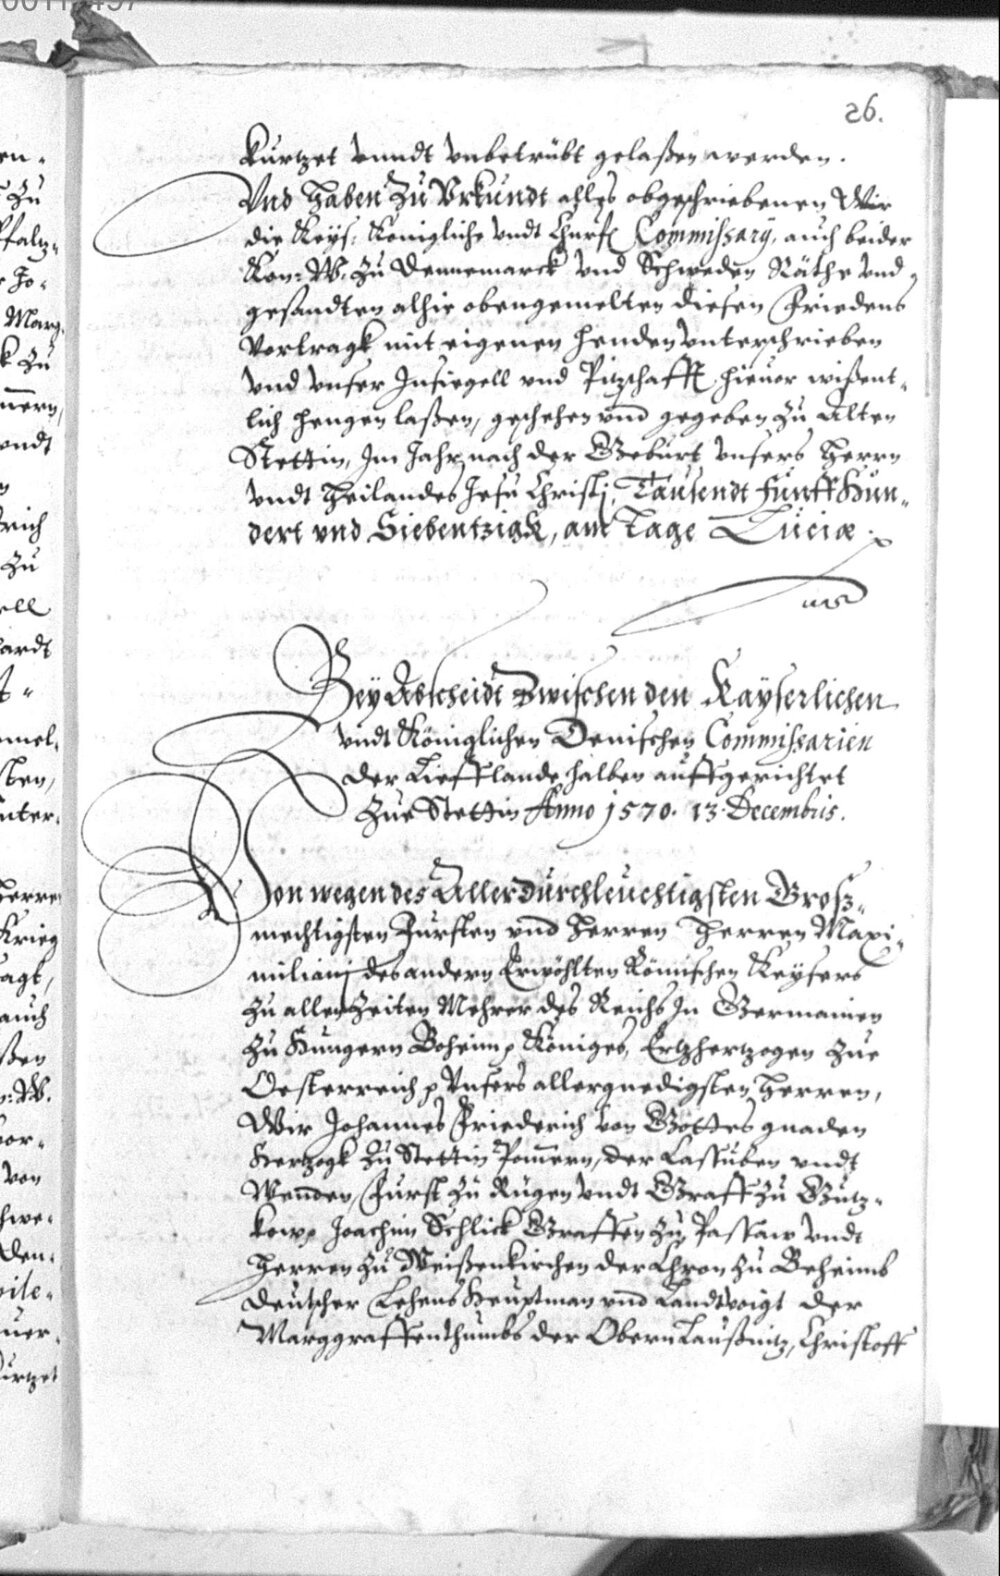 26.
kurtzet unndt unbetrübt gelaßen werden.
Und haben zu Urkundt alles obgeschriebenen Wir
die Keys: Königliche undt Churf Commissarÿ, auch beider
Kön: W. zu Dennemarck und Schweden Räthe und
gesandten alhie obengemelten diesen Friedens
Vortragk mit eigenen henden unterschrieben
und unser Insiegell und Pitzschafft hieuor wißent-
lich hengen laßen, geschehen und gegeben zu Alten
Stettin, Im Jahr nach der Geburt unsers Herrn
undt Heilandes Jesu Christj, Tausendt Fünffhun-
dert und Siebentzigk, am Tage Luciæ.
Bey Abscheidt zwischen den Kayserlichen
undt Königlichen Denischen Commissarien
der Liefflande halben auffgerichtet
zue Stettin Anno 1570. 13. Decembris.
Von wegen des Allerdurchleuchtigsten Großz-
mechtigsten Fursten und Herren Herren Maxi-
miliani des andern Erwöhlten Römischen Keysers
zu allen Zeiten Mehrer des Reichs In Germanien
zu Hungern Boheim p Königes, Ertzhertzogen zue
Oesterreich p Unsers allergnedigsten Herren,
Wir Johannes Friederich von Gottes gnaden
Hertzogk zu Stettin Pommern, der Cassuben undt
Wenden, Furst zu Rügen undt Graff zu Gutz-
kow p Joachim Schlick Graffen zu Passaw undt
Herren zu Weißenkirchen der Chron zu Beheimb
deutscher Lehens Heuptman und Landtvoigt der
Marggraffenthumbs der Obern Laußnitz, Christoff